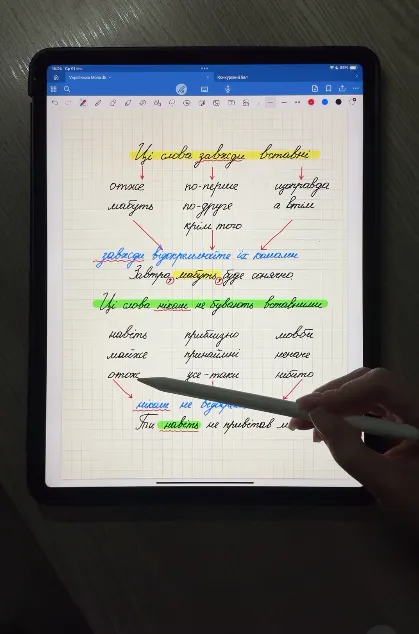 Українська Мова
Конкурсний бал
Ці слова завжди вставні
отже по-перше щоправда
мабуть по-друге а втім
крім того
завжди відокремлюйте їх комами
Завтра, мабуть, буде сонячно
Ці слова ніколи не бувають вставними
навіть приблизно мовби
майже принаймні неначе
отож усе-таки нібито
ніколи не
Ти навіть не привітав